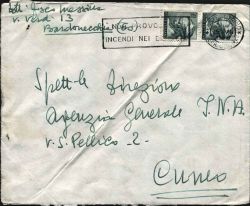 v. Verdi 13
Bardonecchia (To)
NON PROVO
INCENDI NEI
Spett.le Direzione
Agenzia Generale I.N.A.
v. S. Pellico - 2 -
Cuneo